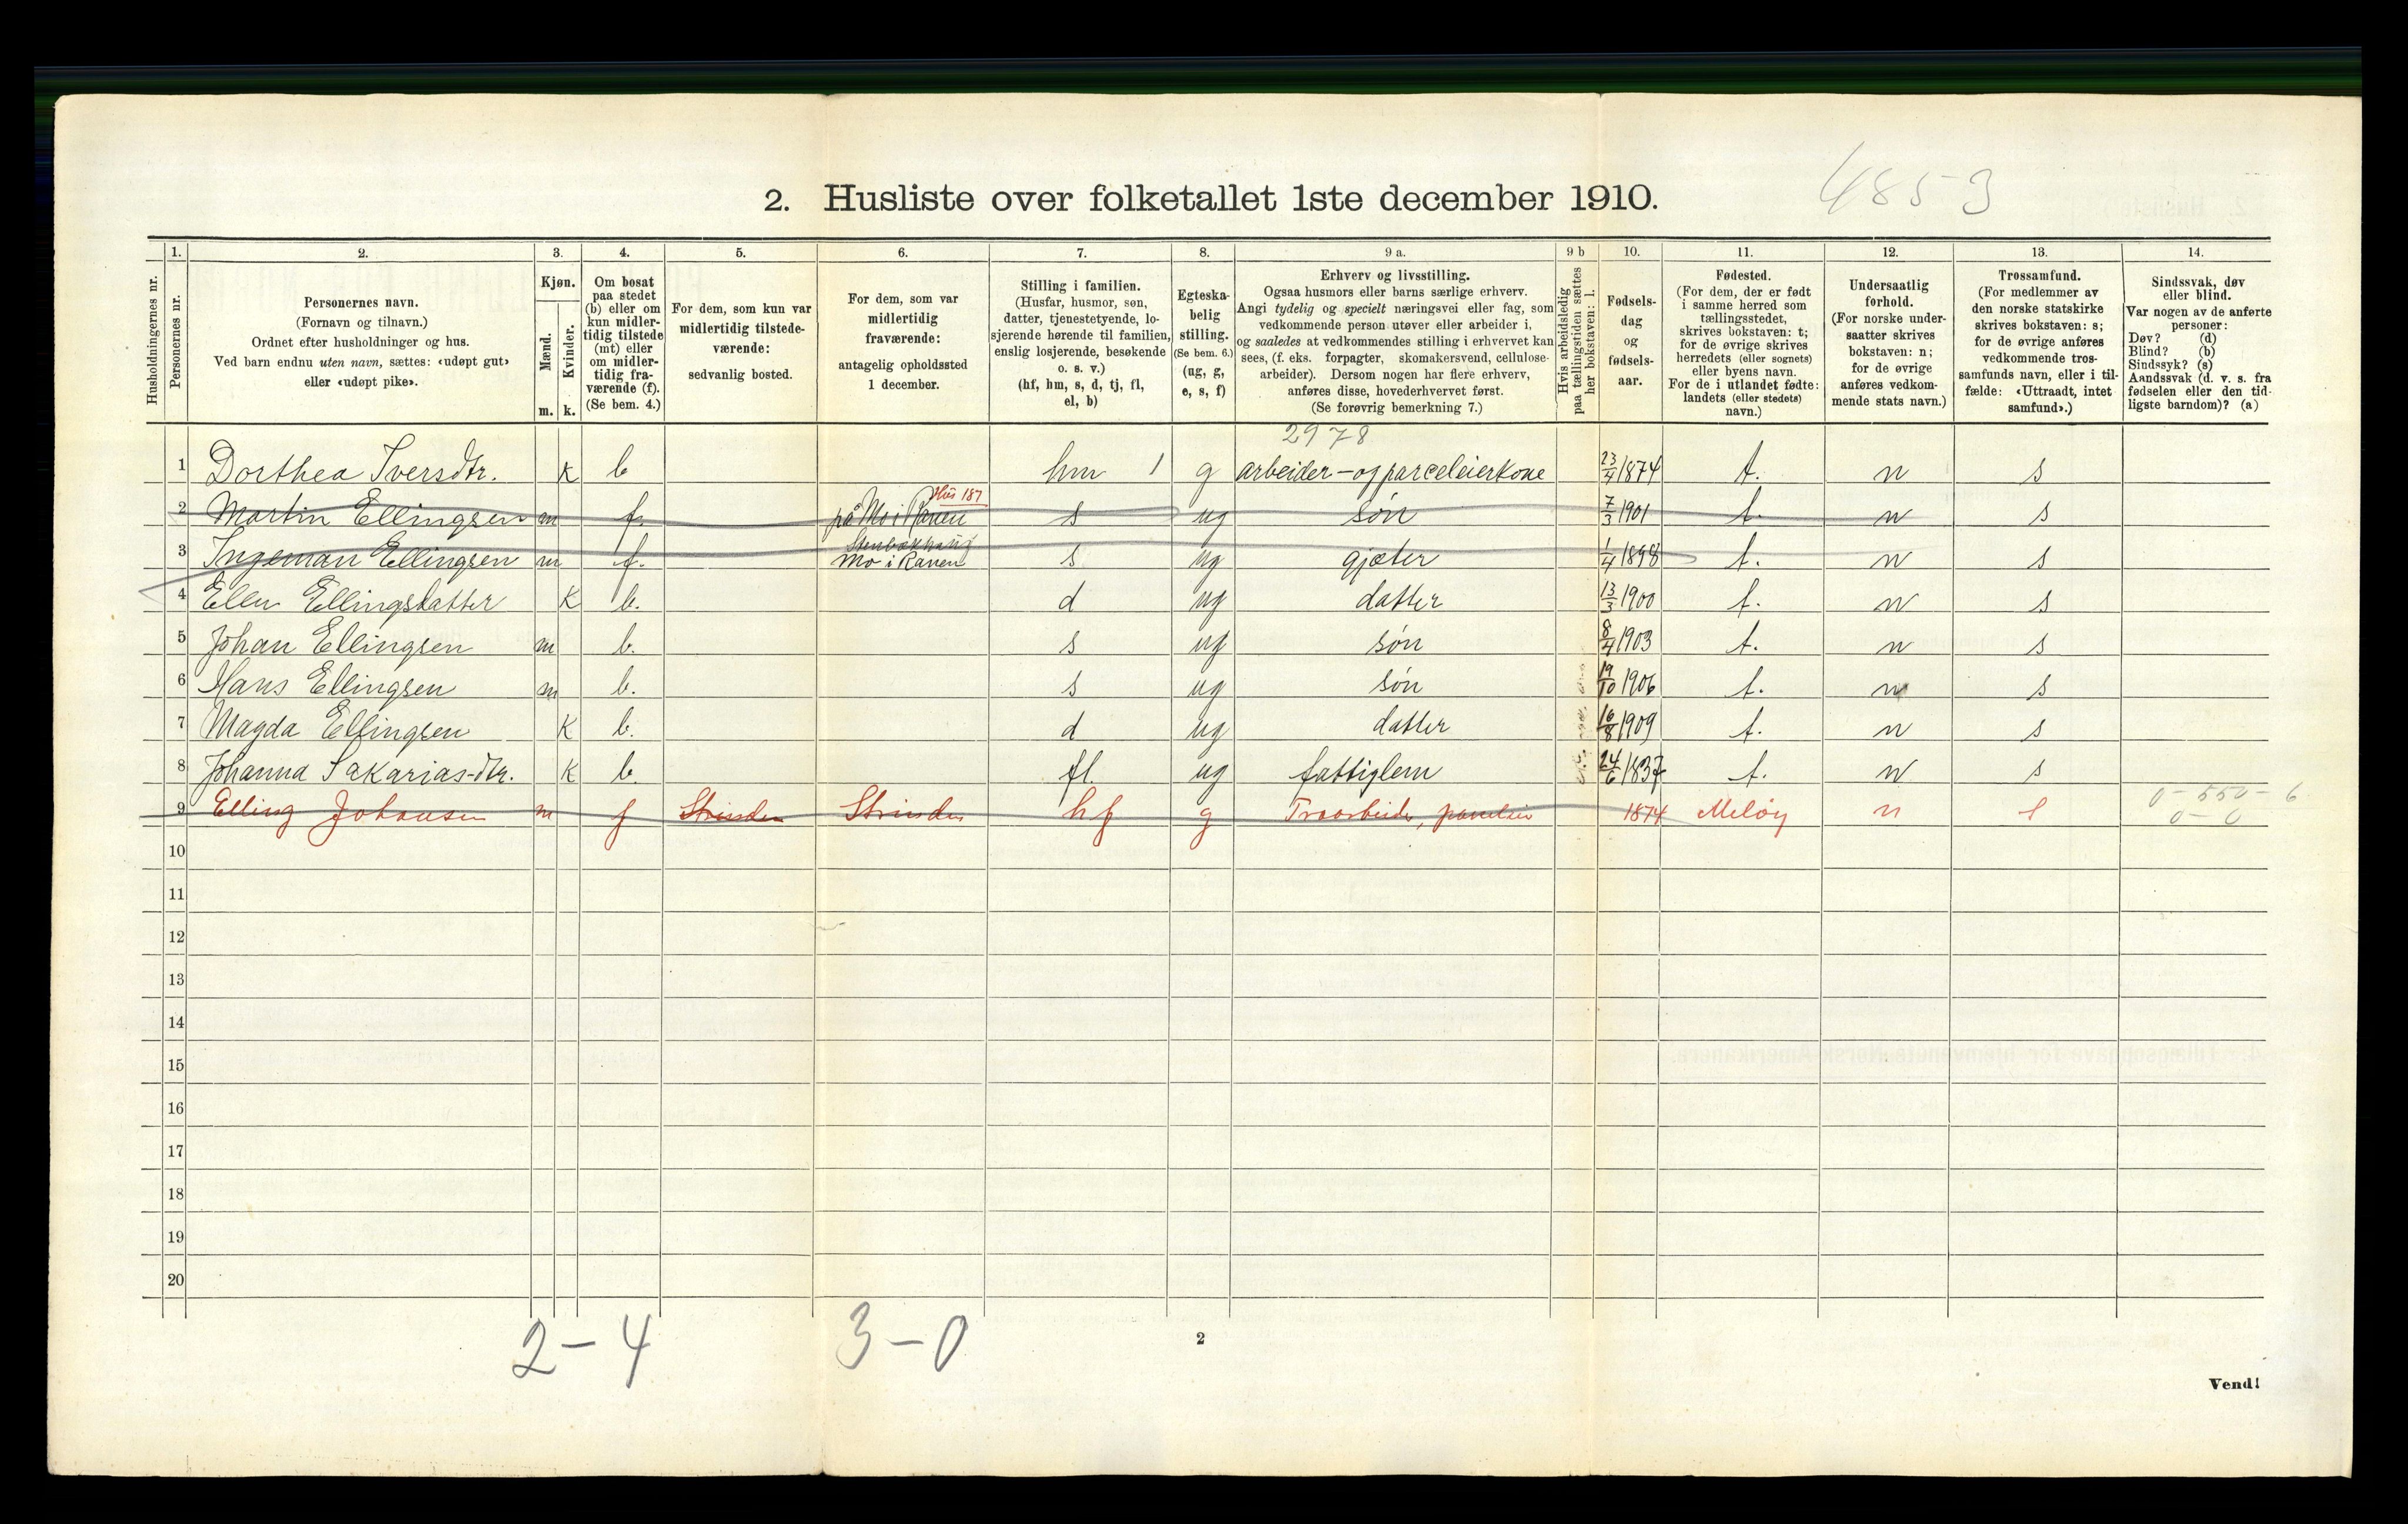 4853
2. Husliste over folketallet 1ste december 1910.
Husholdningernes nr.
1. Personernes nr.
2. Personernes navn. (Fornavn og tilnavn.) Ordnet efter husholdninger og hus. Ved barn endnu uten navn, sættes: «udøpt gut» eller «udøpt pike».
3. Kjøn. Mænd. m. Kvinder. k.
4. Om bosat paa stedet (b) eller om kun midler-tidig tilstede (mt) eller om midler-tidig fra-værende (f). (Se bem. 4.)
5. For dem, som kun var midlertidig tilstede-værende: sedvanlig bosted.
6. For dem, som var midlertidig fraværende: antagelig opholdssted 1 december.
7. Stilling i familien. (Husfar, husmor, søn, datter, tjenestetyende, lo-sjerende hørende til familien, enslig losjerende, besøkende o. s. v.) (hf, hm, s, d, tj, fl, el, b)
8. Egteska-belig stilling. (Se bem. 6.) (ug, g, e, s, f)
9 a. Erhverv og livsstilling. Ogsaa husmors eller barns særlige erhverv. Angi tydelig og specielt næringsvei eller fag, som vedkommende person utøver eller arbeider i, og saaledes at vedkommendes stilling i erhvervet kan sees, (f. eks. forpagter, skomakersvend, cellulose-arbeider). Dersom nogen har flere erhverv, anføres disse, hovederhvervet først. (Se forøvrig bemerkning 7.)
9 b Hvis arbeidsledig paa tællingstiden sættes her bokstaven: l.
10. Fødsels-dag og fødsels-aar.
11. Fødested. (For dem, der er født i samme herred som tællingsstedet, skrives bokstaven: t; for de øvrige skrives herredets (eller sognets) eller byens navn. For de i utlandet fødte: landets (eller stedets) navn.)
12. Undersaatlig forhold. (For norske under-saatter skrives bokstaven: n; for de øvrige anføres vedkom-mende stats navn.)
13. Trossamfund. (For medlemmer av den norske statskirke skrives bokstaven: s; for de øvrige anføres vedkommende tros-samfunds navn, eller i til-fælde: «Uttraadt, intet samfund».)
14. Sindssvak, døv eller blind. Var nogen av de anførte personer: Døv? (d) Blind? (b) Sindssyk? (s) Aandssvak (d. v. s. fra fødselen eller den tid-ligste barndom)? (a)
2978
1 Dorthea Iversdtr. K b hm 1 g arbeider-og parceleierkone 23/4 1874 t. n s
Hus 187
2 Martin Ellingsen m f. på Mo i Ranen s ug søn 7/3 1901 t. n s
3 Ingeman Ellingsen m f. Mo i Ranen s ug gjæter 1/4 1898 t. n s
4 Ellen Ellingsdatter K b. d ug datter 13/3 1900 t. n s
5 Johan Ellingsen m b. s ug søn 8/4 1903 t. n s
6 Hans Ellingsen m b. s ug søn 19/10 1906 t. n s
7 Magda Ellingsen K b. d ug datter 16/8 1909 t. n s
8 Johanna Sakarias-dtr. K b. fl. ug fattiglem 24/6 1837 t. n s
9 Elling Johansen m f Strinden Strinden hf g 1874 Meløy n s
0-550-6
0-0
10
11
12
13
14
15
16
17
18
19
20
2-4 3-0
2
Vend!